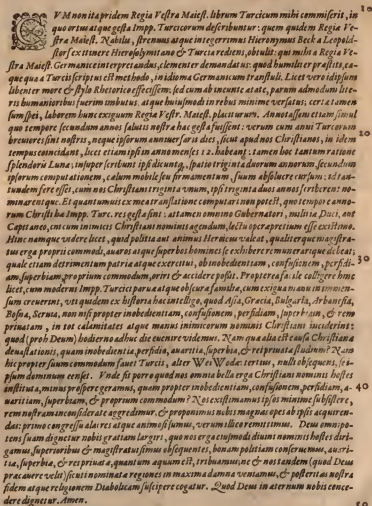 CVM non ita pridem Regia Vestra Maiest. librum Turcicum mihi commiserit, in
quo ortus atque gesta Impp. Turcicorum describuntur: quem quidem Regia ve-
stra Maiest. Nobilis, strenuus atque integerrimus Hieronymus Beck à Leopold-
storf ex itinere Hierosolymitano & Turcia rediens, obtulit: qui mihi à Regia Ve-
stra Maiest. Germanicè interpretandus, clementer demandatus: quod humiliter præstiti, ea-
que quæ à Turcis scriptus est methodo, in idioma Germanicum transtuli. Licet verò id ipsum
libenter more & stylo Rhetorico effecissem: sed cum ab ineunte ætate, parum admodum lite-
ris humanioribus fuerim imbutus, atque huiusmodi in rebus minimè versatus; certa tamen
sum spei, laborem hunc exiguum Regiæ Vestr. Maiest. placiturum. Annotassem etiam, simul
quo tempore secundum annos salutis nostræ hæc gesta fuissent: verum cum anni Turcorum
breuiores sint nostris, neque ipsorum anniuersarij dies, sicut apud nos Christianos, in idem
tempus incidant, licet etiam ipsi in anno menses 12. habeant: tamen hoc tantum ratione
splendoris Lunæ; insuper scribunt ipsi dicunt &, spatio triginta duorum annorum, secundum
ipsorum computationem, cælum mobile seu firmamentum, suum absoluere cursum: id tan-
tundem fere esset, cum nos Christiani triginta vnum, ipsi triginta duos annos scriberent no-
minarentque. Et quantumuis ex mea translatione computari non potest, quo tempore anno-
rum Christi hæc Impp. Turc. res gesta sint: attamen omnino Gubernatori, militiæ Duci, aut
Capitaneo, cui cum inimicis Christiani nominis agendum, lectu operæ pretium esse existimo.
Hinc namque videre licet, quid politia aut animus Heroicus valeat, qualiterque magistra-
tus erga proprij commodi, auaros atque superbos homines se exhibere remunerarique debeat:
quale etiam detrimentum patriæ atque exercitui, ob inobedientiam, confusionem, perfidi-
am, superbiam, proprium commodum, oriri & accidere possit. Propterea facile colligere hinc
licet, cum modernis Impp. Turcici parua atque obscura familia, cum exigua manu in immen-
sum creuerint, vt quidem ex historia hac intelligo, quod Asia, Græcia, Bulgaria, Arbanesia,
Bosna, Seruia, non nisi propter inobedientiam, confusionem, perfidiam, superbiam, & rem
priuatam, in tot calamitates atque manus inimicorum nominis Christiani inciderint:
quod (proh Deum) hodierno adhuc die euenire videmus. Nam quæ alia est causa Christianæ
deuastationis, quàm inobedientia, perfidia, auaritia, superbia, & rei priuatæ studium? Nam
hic propter suum commodum fauet Turcis, alter WeiWodæ: tertius, nulli obsequens, se-
ipsum dominum censet. Vnde fit porrò quod nos omnia bella erga Christiani nominis hostes
instituta, minus prosperè geramus, quàm propter inobedientiam, confusionem, perfidiam, a-
uaritiam, superbiam, & proprium commodum? Nos existimamus ipsos minimè subsistere,
rem nostram inconsideratè aggredimur, & proponimus nobis magnas opes ab ipsis acquiren-
das: primo congressu alacres atque animosi sumus, verum illico remittimus. Deus omnipo-
tens suam dignetur nobis gratiam largiri, quo nos erga eiusmodi diuini nominis hostes diri-
gamus, superioribus & magistratus simus obsequentes, bonam politiam conseruemus, auari-
tia, superbia, & rei priuatæ, quantum æquum est, tribuamus; ne & nos tandem (quod Deus
præcauere velit) sicuti nominatæ regiones in maxima damna veniamus, & posteritas nostra
fidem atque religionem Diabolicam suscipere cogatur. Quod Deus in æternum nobis conce-
dere dignetur. Amen.
10
20
30
40
50